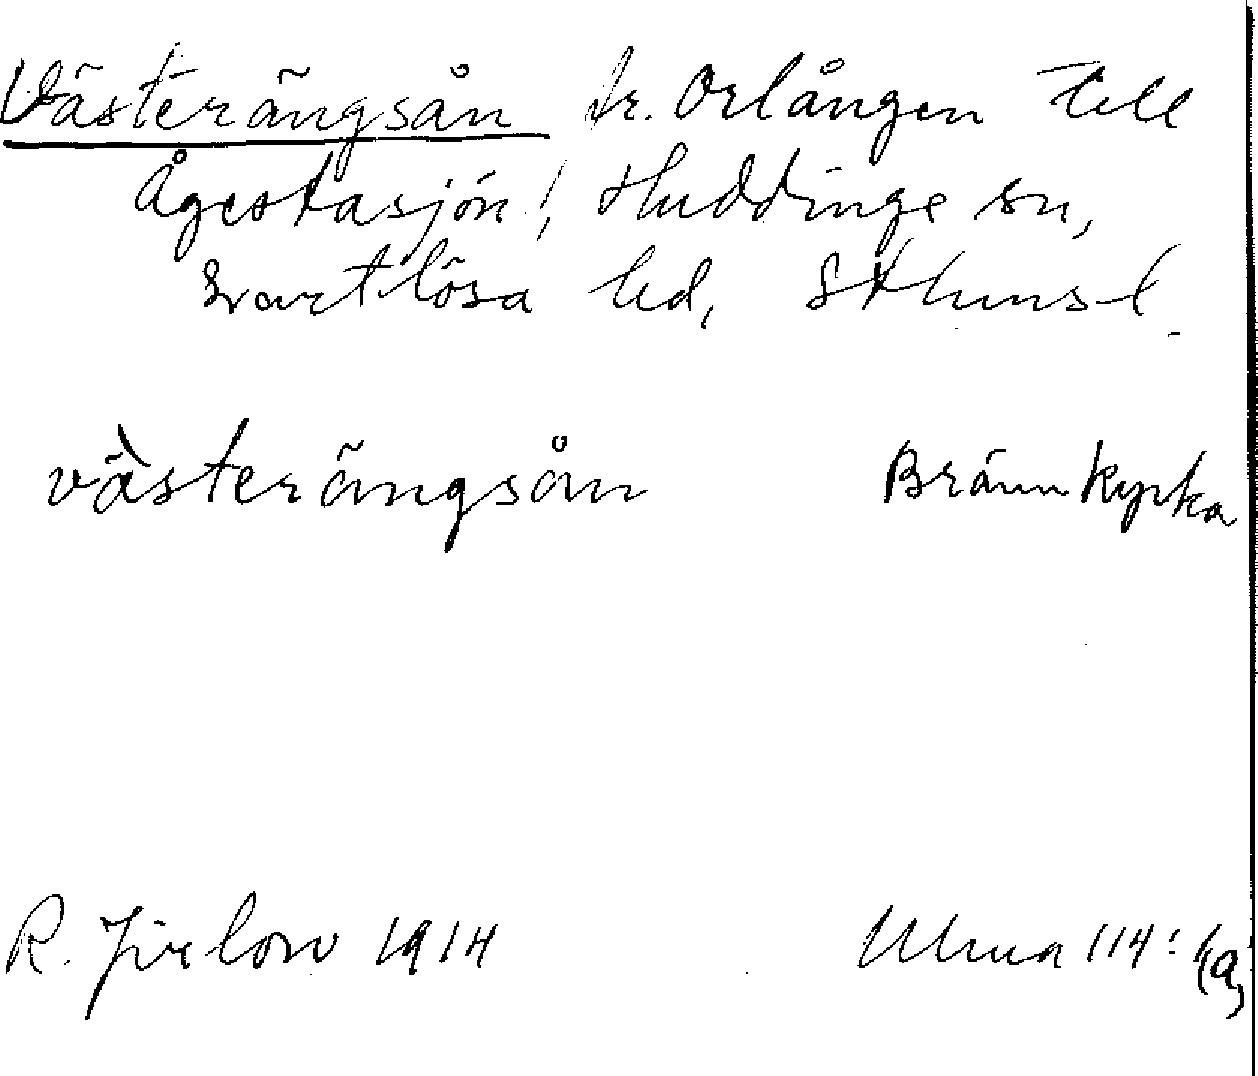 Västerängsån fr. Orlången till
Ågestasjön!, Huddinge sn,
Svartlösa hd, Sthms l.
västerängsån Brännkyrka
R. Jirlow 1914 Ulma 114: